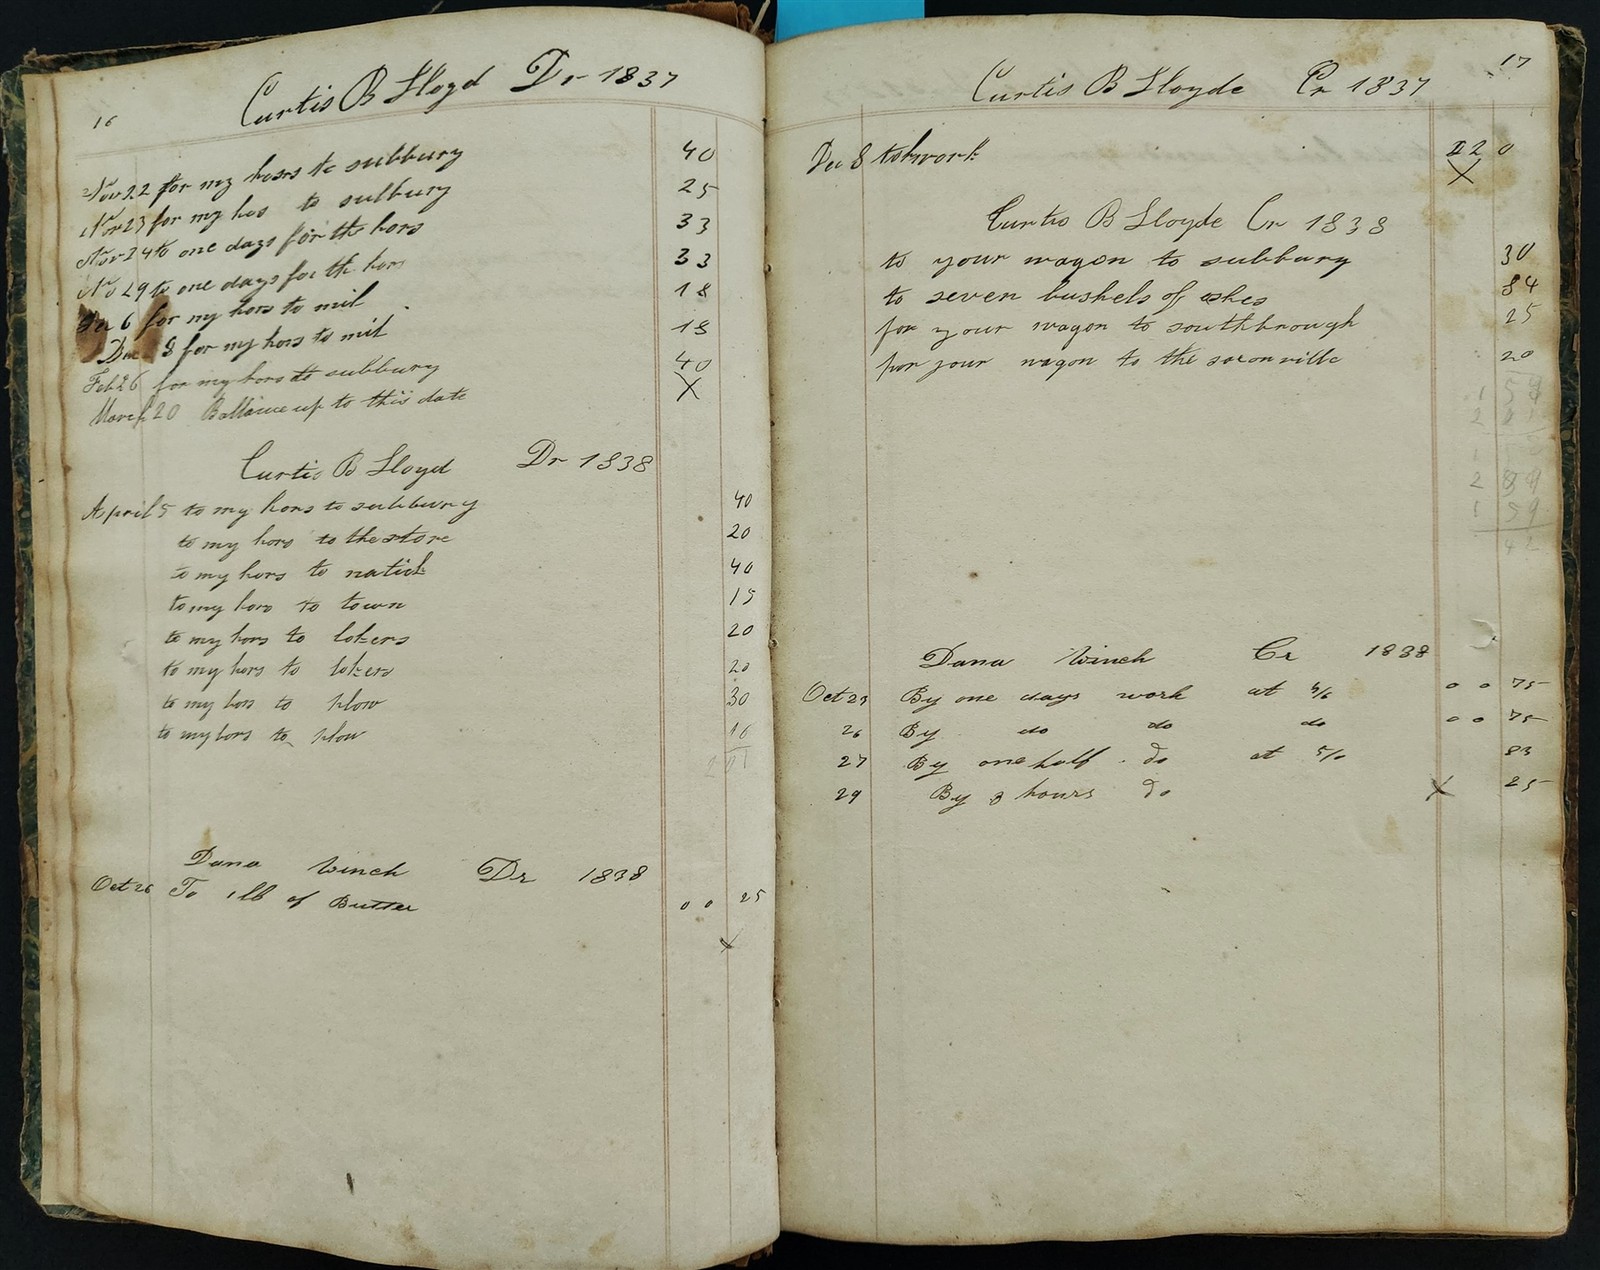 16
Curtis B Lloyd Dr 1837
Nov 22 for my hors to subbury 40
Nov 23 for my hos to subbury 25
Nov 24 to one days for th hors 33
No 29 to one days for th hors 33
De 6 for my hors to mil 18
Dec 8 for my hors to mil 18
Feb 26 for my hors to subbury 40
March 20 Ballance up to this date X
Curtis B Lloyd Dr 1838
April 5 to my hors to subbury 40
to my hors to the store 20
to my hors to natick 40
to my hors to town 15
to my hors to lokers 20
to my hors to lokers 20
to my hors to plow 30
to my hors to plow 16
2 01
Dana Winch Dr 1838
Oct 26 To 1 lb of Butter 0 0 25
X
17
Curtis B Lloyde Cr 1837
Dec 8 to work 2 2 0
X
Curtis B Lloyde Cr 1838
to your wagon to subbury 30
to seven bushels of ashes 84
for your wagon to southbrough 25
for your wagon to the saxonville 20
1 59
2 01
2
1 59
42
Dana Winch Cr 1838
Oct 25 By one days work at 4/6 0 0 75
26 By do do do 0 0 75
27 By one half do at 5/0 83
29 By 3 hours do X 25